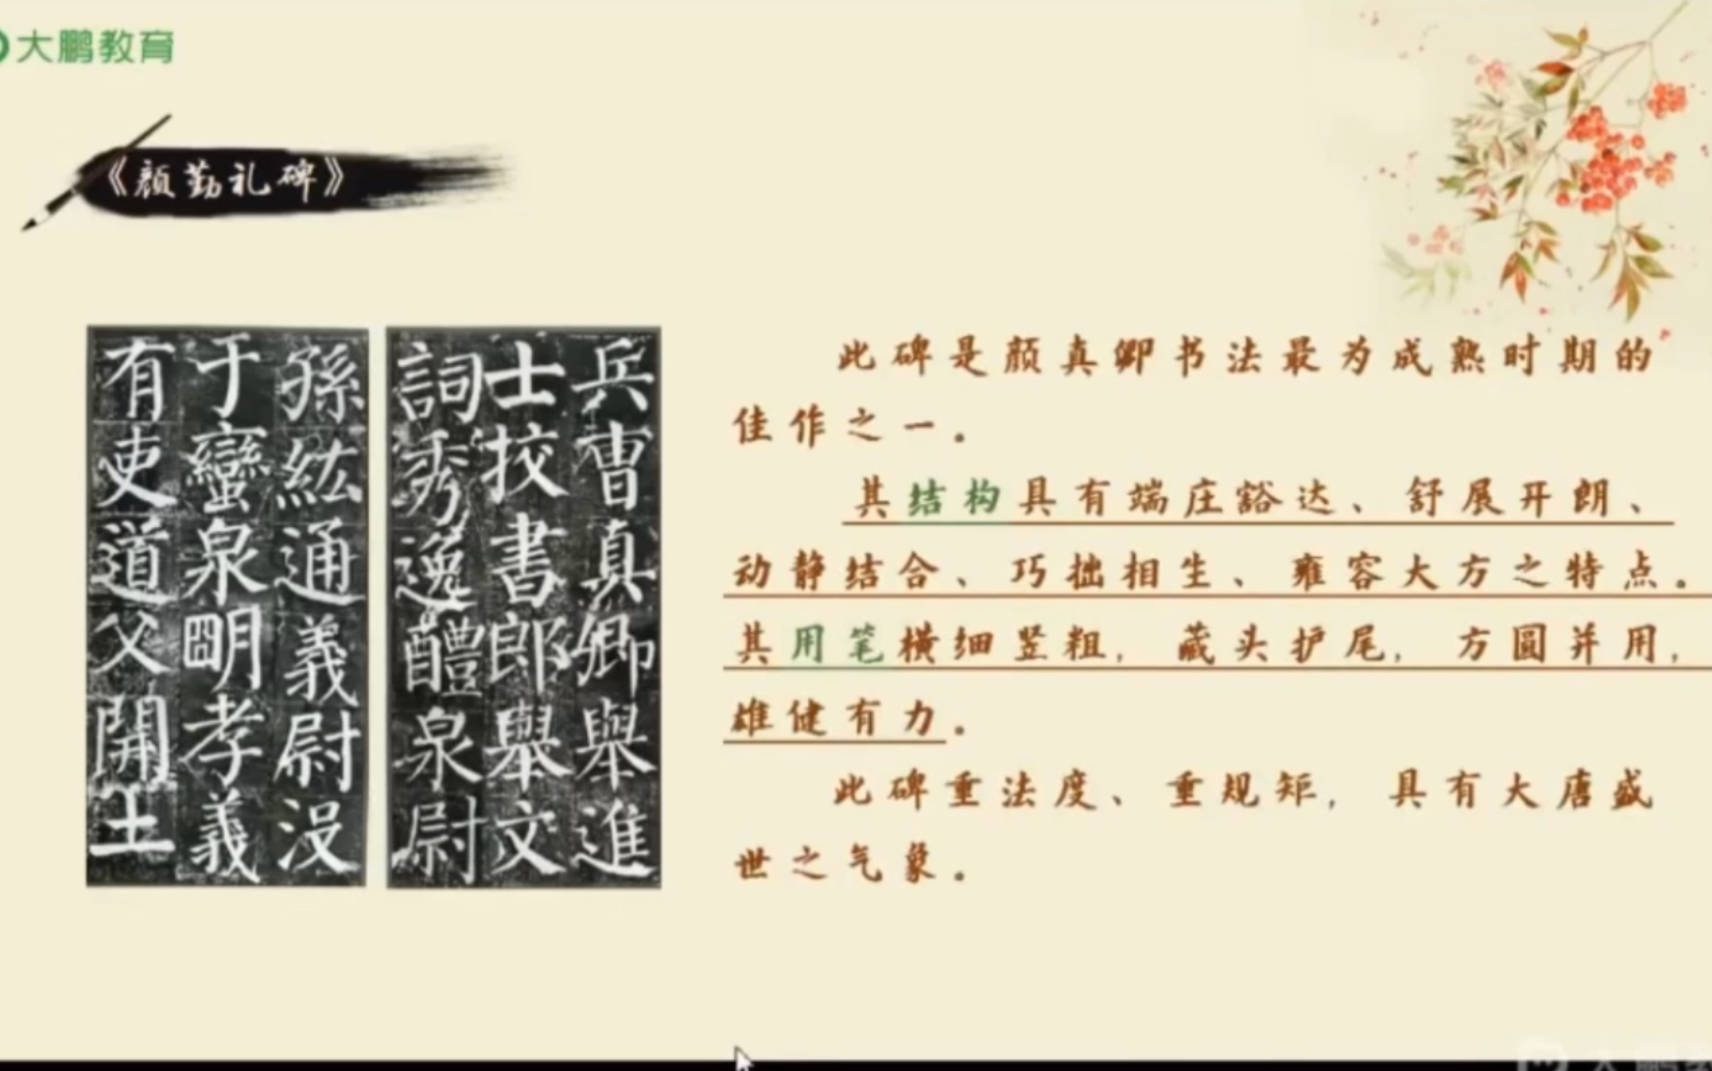 大鹏教育
《颜勤礼碑》
孫紘通義尉没
于蠻泉明孝義
有吏道父開士
兵曹真卿舉進
士挍書郎舉文
詞秀逸醴泉尉
此碑是颜真卿书法最为成熟时期的
佳作之一。
其结构具有端庄豁达、舒展开朗、
动静结合、巧拙相生、雍容大方之特点。
其用笔横细竖粗，藏头护尾，方圆并用，
雄健有力。
此碑重法度、重规矩，具有大唐盛
世之气象。